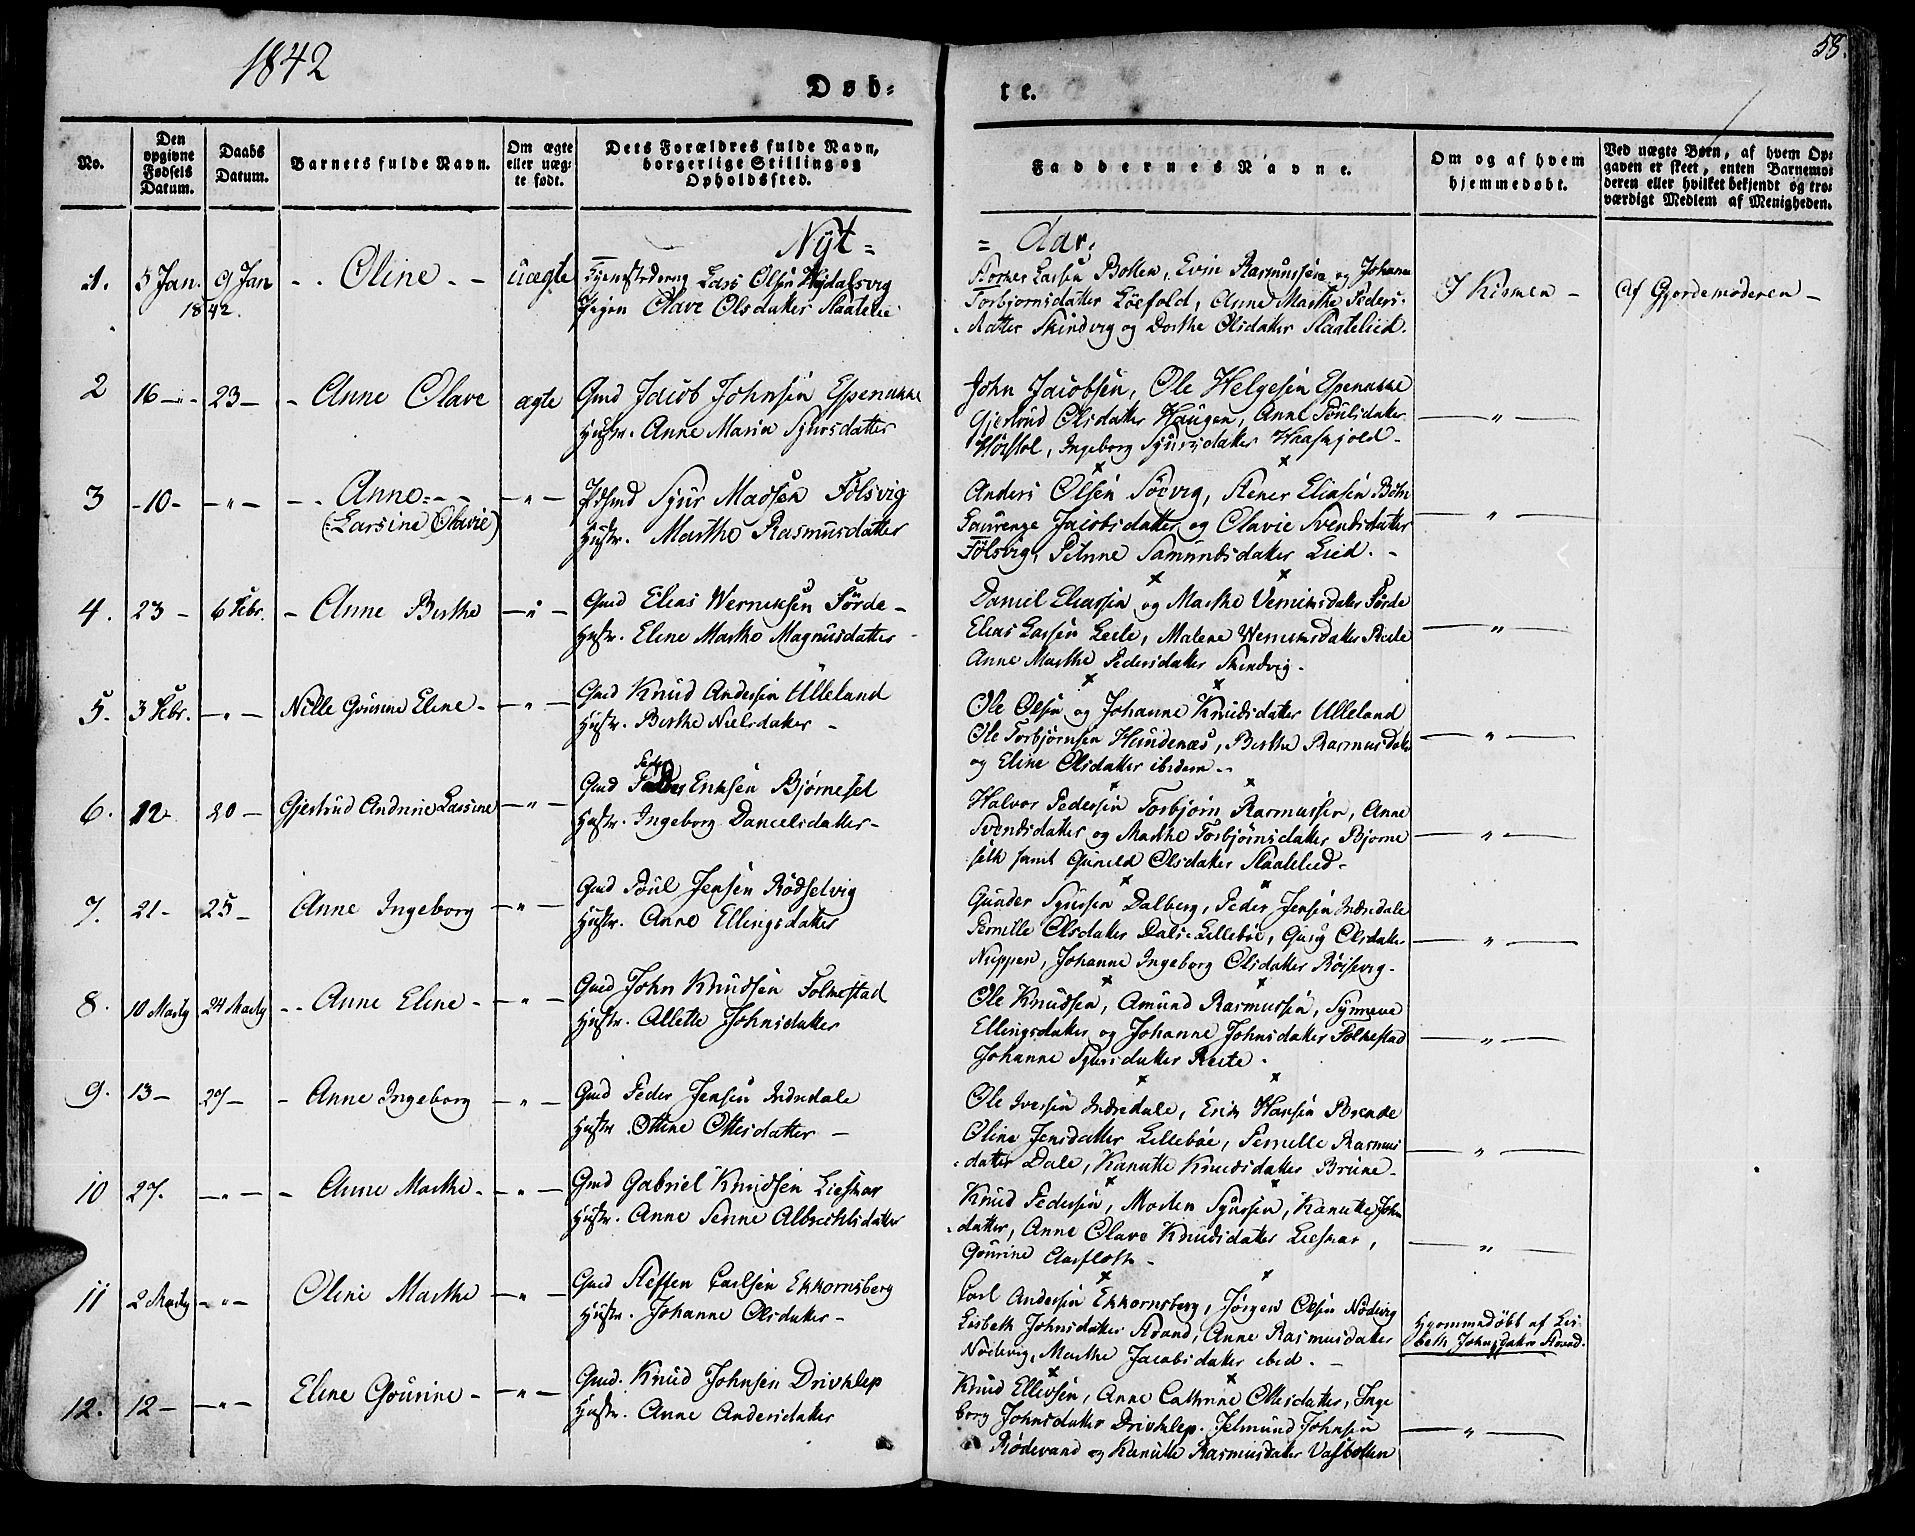 1842
58.
Døb=
te.
No.
Den opgivne Fødsels Datum.
Daabs Datum.
Barnets fulde Navn.
Om ægte eller uæg- te født.
Dets Forældres fulde Navn, borgerlige Stilling og Opholdssted.
Faddernes Navne.
Om og af hvem hjemmedøbt.
Ved uægte Børn, af hvem Op- gaven er skeet, enten Barnemo- deren eller hvilket bekjendt og tro- værdigt Medlem af Menigheden.
Nyt =
= Aar.
1. 5 Jan. 9 Jan - - Oline - - uægte Lars Olsen Hejdalsvig
1842. Pigen Olave Olsdatter Slaatelie
Larsen Botten, Evin Rasmussen og Johanne
Torbjørnsdatter Løefold, Anne Marthe Peders-
datter Skindvig og Dorthe Olsdatter Slaatelied.
I Kirken -
Af Gjordemoderen -
2 16 - 23 - - Anne Olave ægte Gmd Jacob Johnsen Espenakke
Hustr. Anne Maria Sjursdatter
John Jacobsen, Ole Helgesen Espenakke
Gjertrud Olsdatter Haugen, Anne Poulsdatter
Høistøl, Ingeborg Sjursdatter Haaskjold -
3 -10- - " - - - Anne - - - " - Sjur Madsen Følsvig
(Larsine Olavie) Hustr. Marthe Rasmusdatter
Anders Olsen Søevig, Stener Eliasen
Laurenze Jacobsdatter og Olavie Svendsdatter
Følsvig, Petrine Samundsdatter Lied. -
4. 23 - 6 Febr. - Anne Berthe - " - Gmd Elias Werniksen Førde -
Hustr. Eline Marthe Magnusdatter
Daniel Eliassen og Marthe Førde
Elias Larsen Leite, Malene
Anne Marthe Pedersdatter Skindvig -
5. 3 Febr. - " - Nille Gurine Eline - - " - Gmd Knud Andersen Ulleland
Hustr. Berthe Nielsdatter -
Ole Olsen og Johanne Knudsdatter Ulleland
Ole Torbjørnsen Hundenæs, Berthe Rasmusdatter
og Eline Olsdatter ibidem -
6. 12 20 - Gjertrud Andrine Larsine - " - Gmd Peder Eriksen Bjørneset
Hustr. Ingeborg Danielsdatter -
Halvor Pedersen Torbjørn Rasmussen, Anne
Svendsdatter og Marthe Torbjørnsdatter Bjørne
seth samt Gunild Olsdatter Slaatelied -
7. 21 - 25 - Anne Ingeborg - " - Gmd Poul Jensen Rødselvig
Hustr. Anne Ellingsdatter
Gunder Sjursen Dalberg, Peder Jensen Indredale
Pernille Olsdatter Dals-Lillebøe, Olsdatter
Nuppen, Johanne Ingeborg Olsdatter Røisevig -
8. 10 Marty 24 Marty - - Anne Eline - - " - Gmd John Knudsen Folkestad
Hustr. Allette Johnsdatter
Ole Knudsen, Amund Rasmussen, Synneve
Ellingsdatter og Johanne Johnsdatter Folkestad
Johanne Sjursdatter Reite -
9. 13 - 27 - - Anne Ingeborg - " - Gmd Peder Jensen Indredale
Hustr. Ottine Ottesdatter -
Ole Iversen Indredale, Erik Hansen Brende
Oline Jensdatter Lillebøe, Pernille Rasmus
datter Dale, Kanutte Knudsdatter Brune -
10 27. - " - - Anne Marthe - - " - Gmd Gabriel Knudsen Lieskar
Hustr. Anne Senne Albrechtsdatter
Knud Pedersen, Morten Sjursen, Kanutte John
datter, Anne Olave Knudsdatter Lieskar,
Gourine Aarfloth -
11 2 Marty - " - Oline Marthe - " - Gmd Steffen Carlsen Ekkornsberg
Hustr. Johanne Olsdatter -
Carl Andersen Ekkornsberg, Jørgen Olsen Nødevig
Lisbeth Johnsdatter Strand, Anne Rasmusdatter
Nødevig, Marthe Jacobsdatter ibid. -
Hjemmedøbt af Lis-
beth Johnsdatter Strand.
12. 12 - - " - Eline Gourine - - " - Gmd. Knud Johnsen Drivklep
Hustr. Anne Andersdatter
Knud Ellevsen, Anne Cathrine Ottesdatter, Inge
borg Johnsdatter Drivklep. Johnsen
Rødevand og Kanutte Rasmusdatter Vatbotten